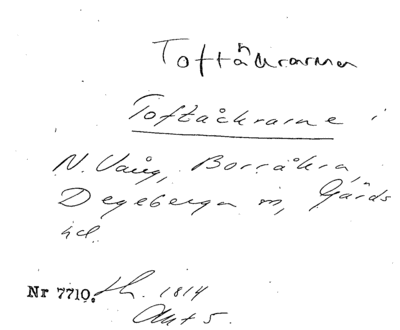 Toftåkrarna
Toftåckrarne i
N. Vång, Borråkra,
Degeberga sn, Gärds
hd.
Nr 7710. th. 1814
Akt 5.